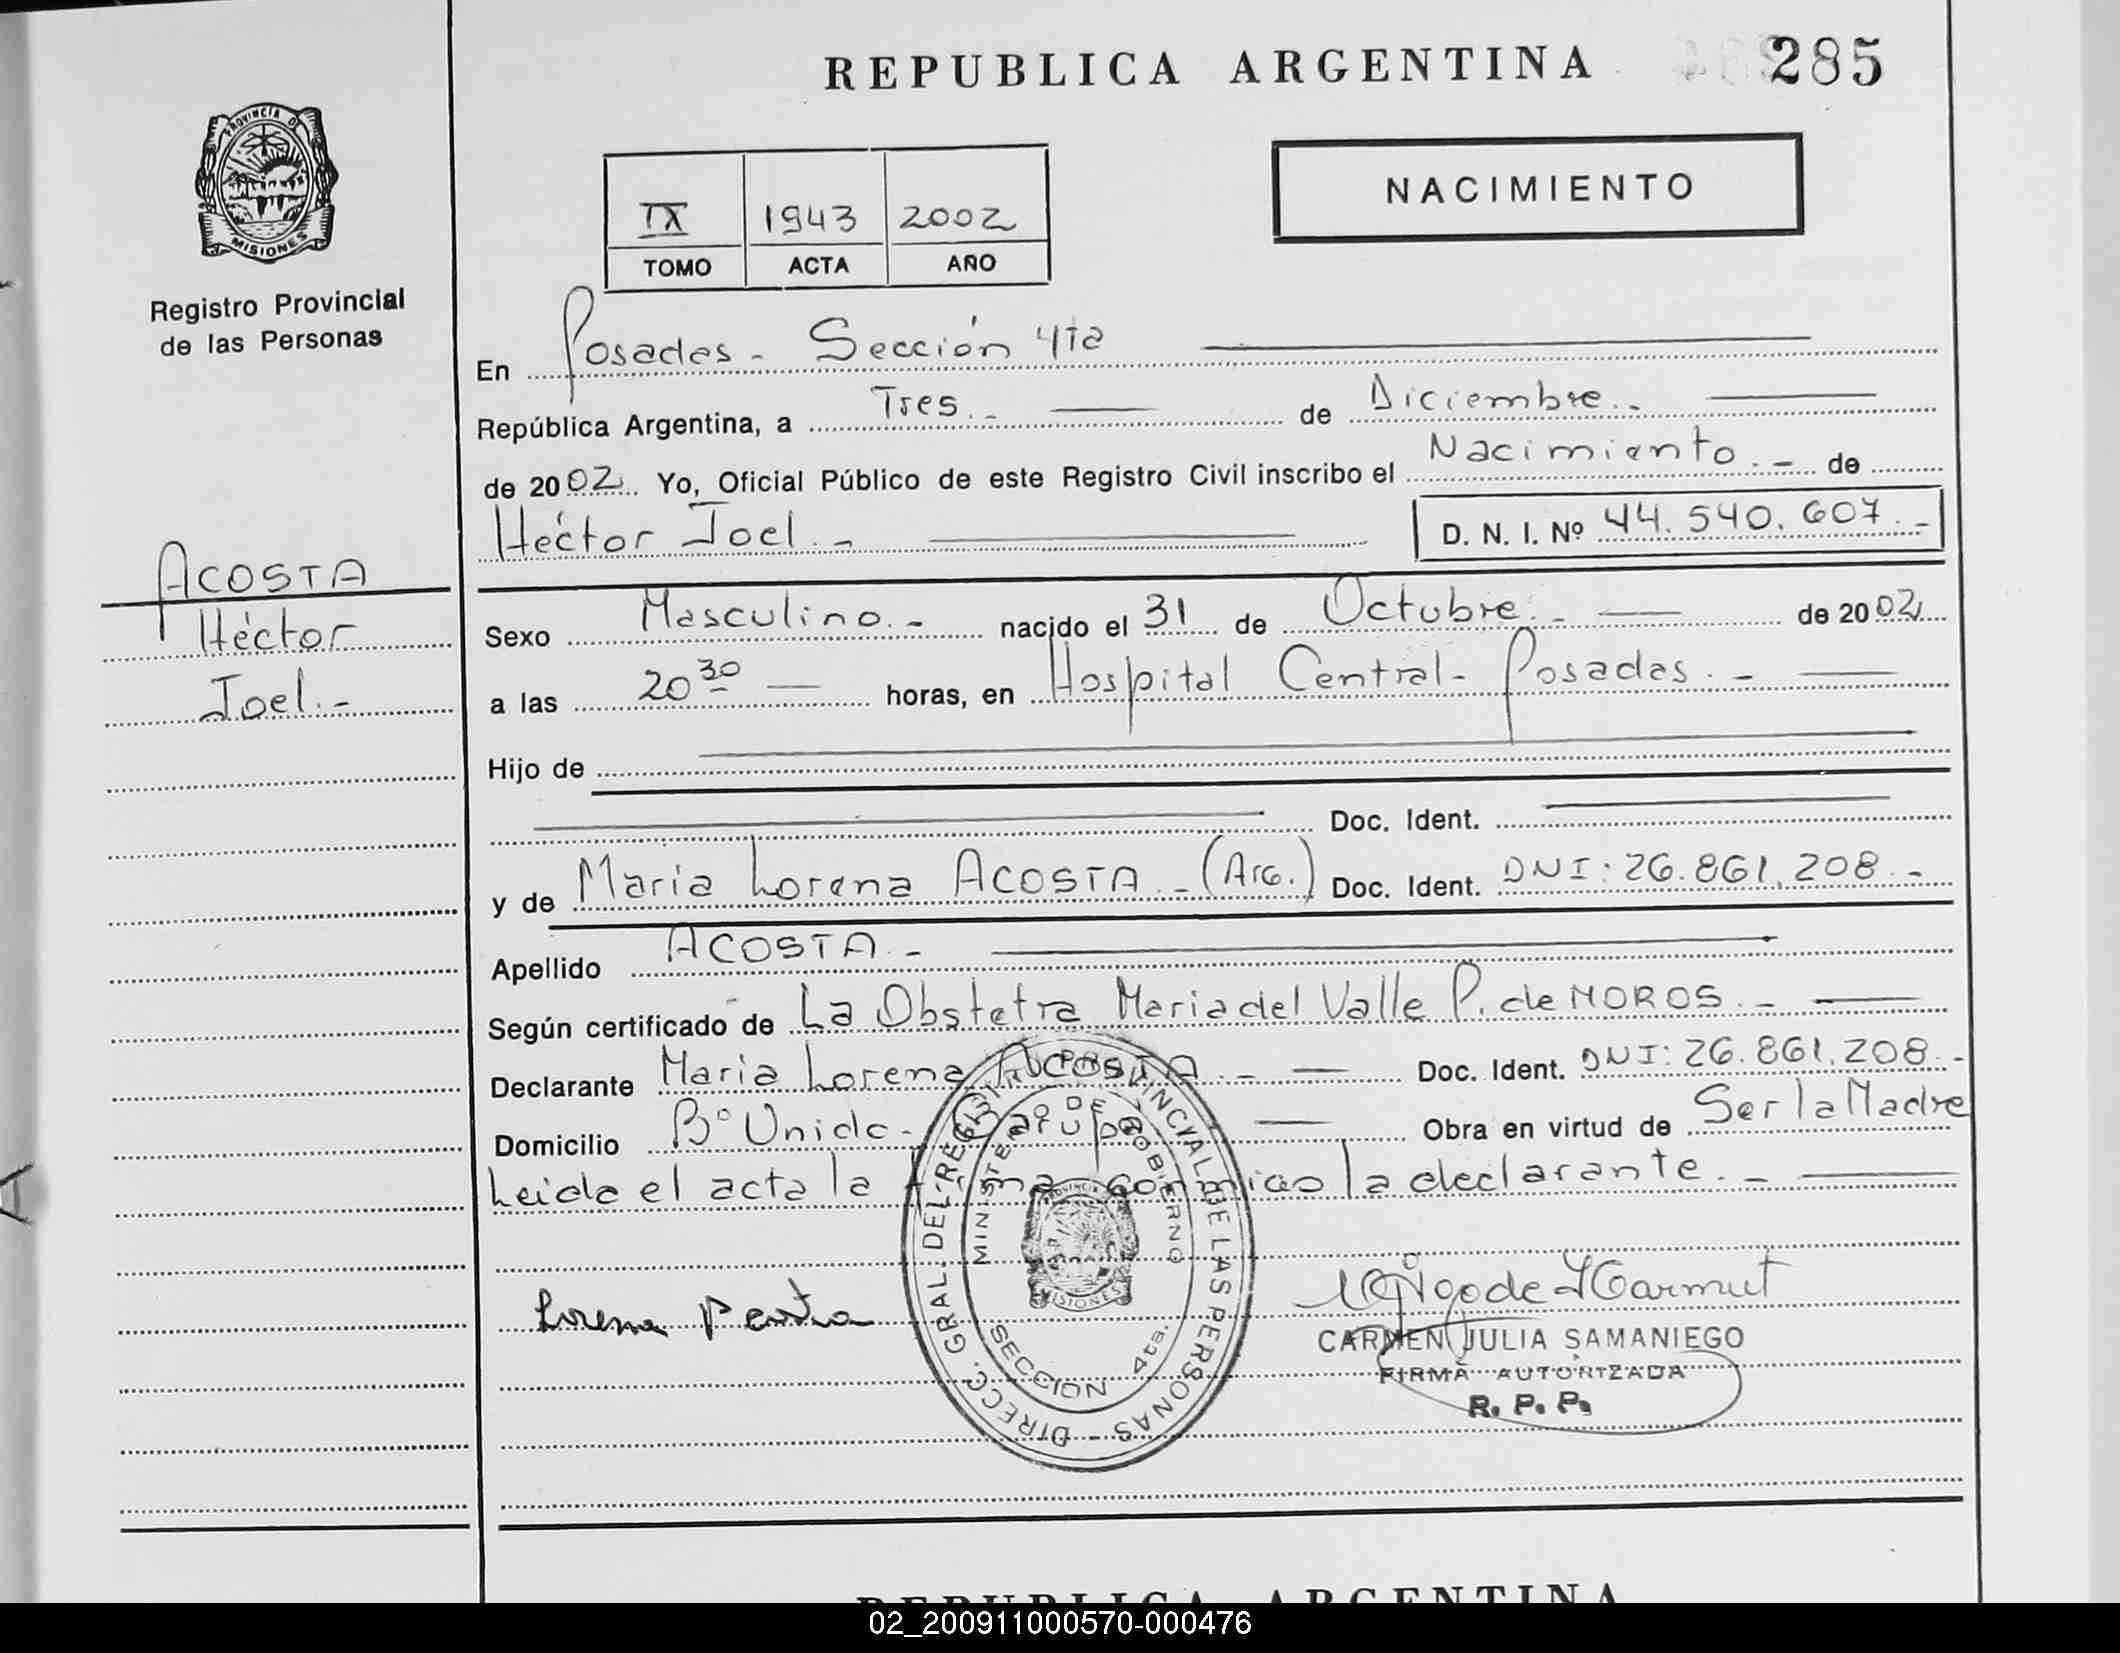 REPUBLICA ARGENTINA
285
PROVINCIA DE
MISIONES
Registro Provincial
de las Personas
IX 1943 2002
TOMO ACTA AÑO
NACIMIENTO
En Posadas - Sección 4ta
República Argentina, a Tres.- de Diciembre.-
de 2002. Yo, Oficial Público de este Registro Civil inscribo el Nacimiento.- de
Héctor Joel.- D. N. I. Nº 44.540.607.-
ACOSTA
Héctor
Joel.-
Sexo Masculino.- nacido el 31 de Octubre.- de 2002
a las 20 30 horas, en Hospital Central - Posadas.-
Hijo de
Doc. Ident.
y de Maria Lorena ACOSTA.- (Arg.) Doc. Ident. DNI: 26.861.208.-
Apellido ACOSTA.-
Según certificado de La Obstetra Maria del Valle P. de MOROS.-
Declarante Maria Lorena ACOSTA.- Doc. Ident. DNI: 26.861.208.-
Domicilio Bº Unido - Garupá Obra en virtud de Ser la Madre
Leida el acta la firma conmigo la declarante.-
DIRECC. GRAL. DEL REGISTRO PROVINCIAL DE LAS PERSONAS -
MINISTERIO DE GOBIERNO
PROVINCIA
MISIONES
SECCION 4ta.
Lorena
CARMEN JULIA SAMANIEGO
FIRMA AUTORIZADA
R. P. P.
REPUBLICA ARGENTINA
02_200911000570-000476